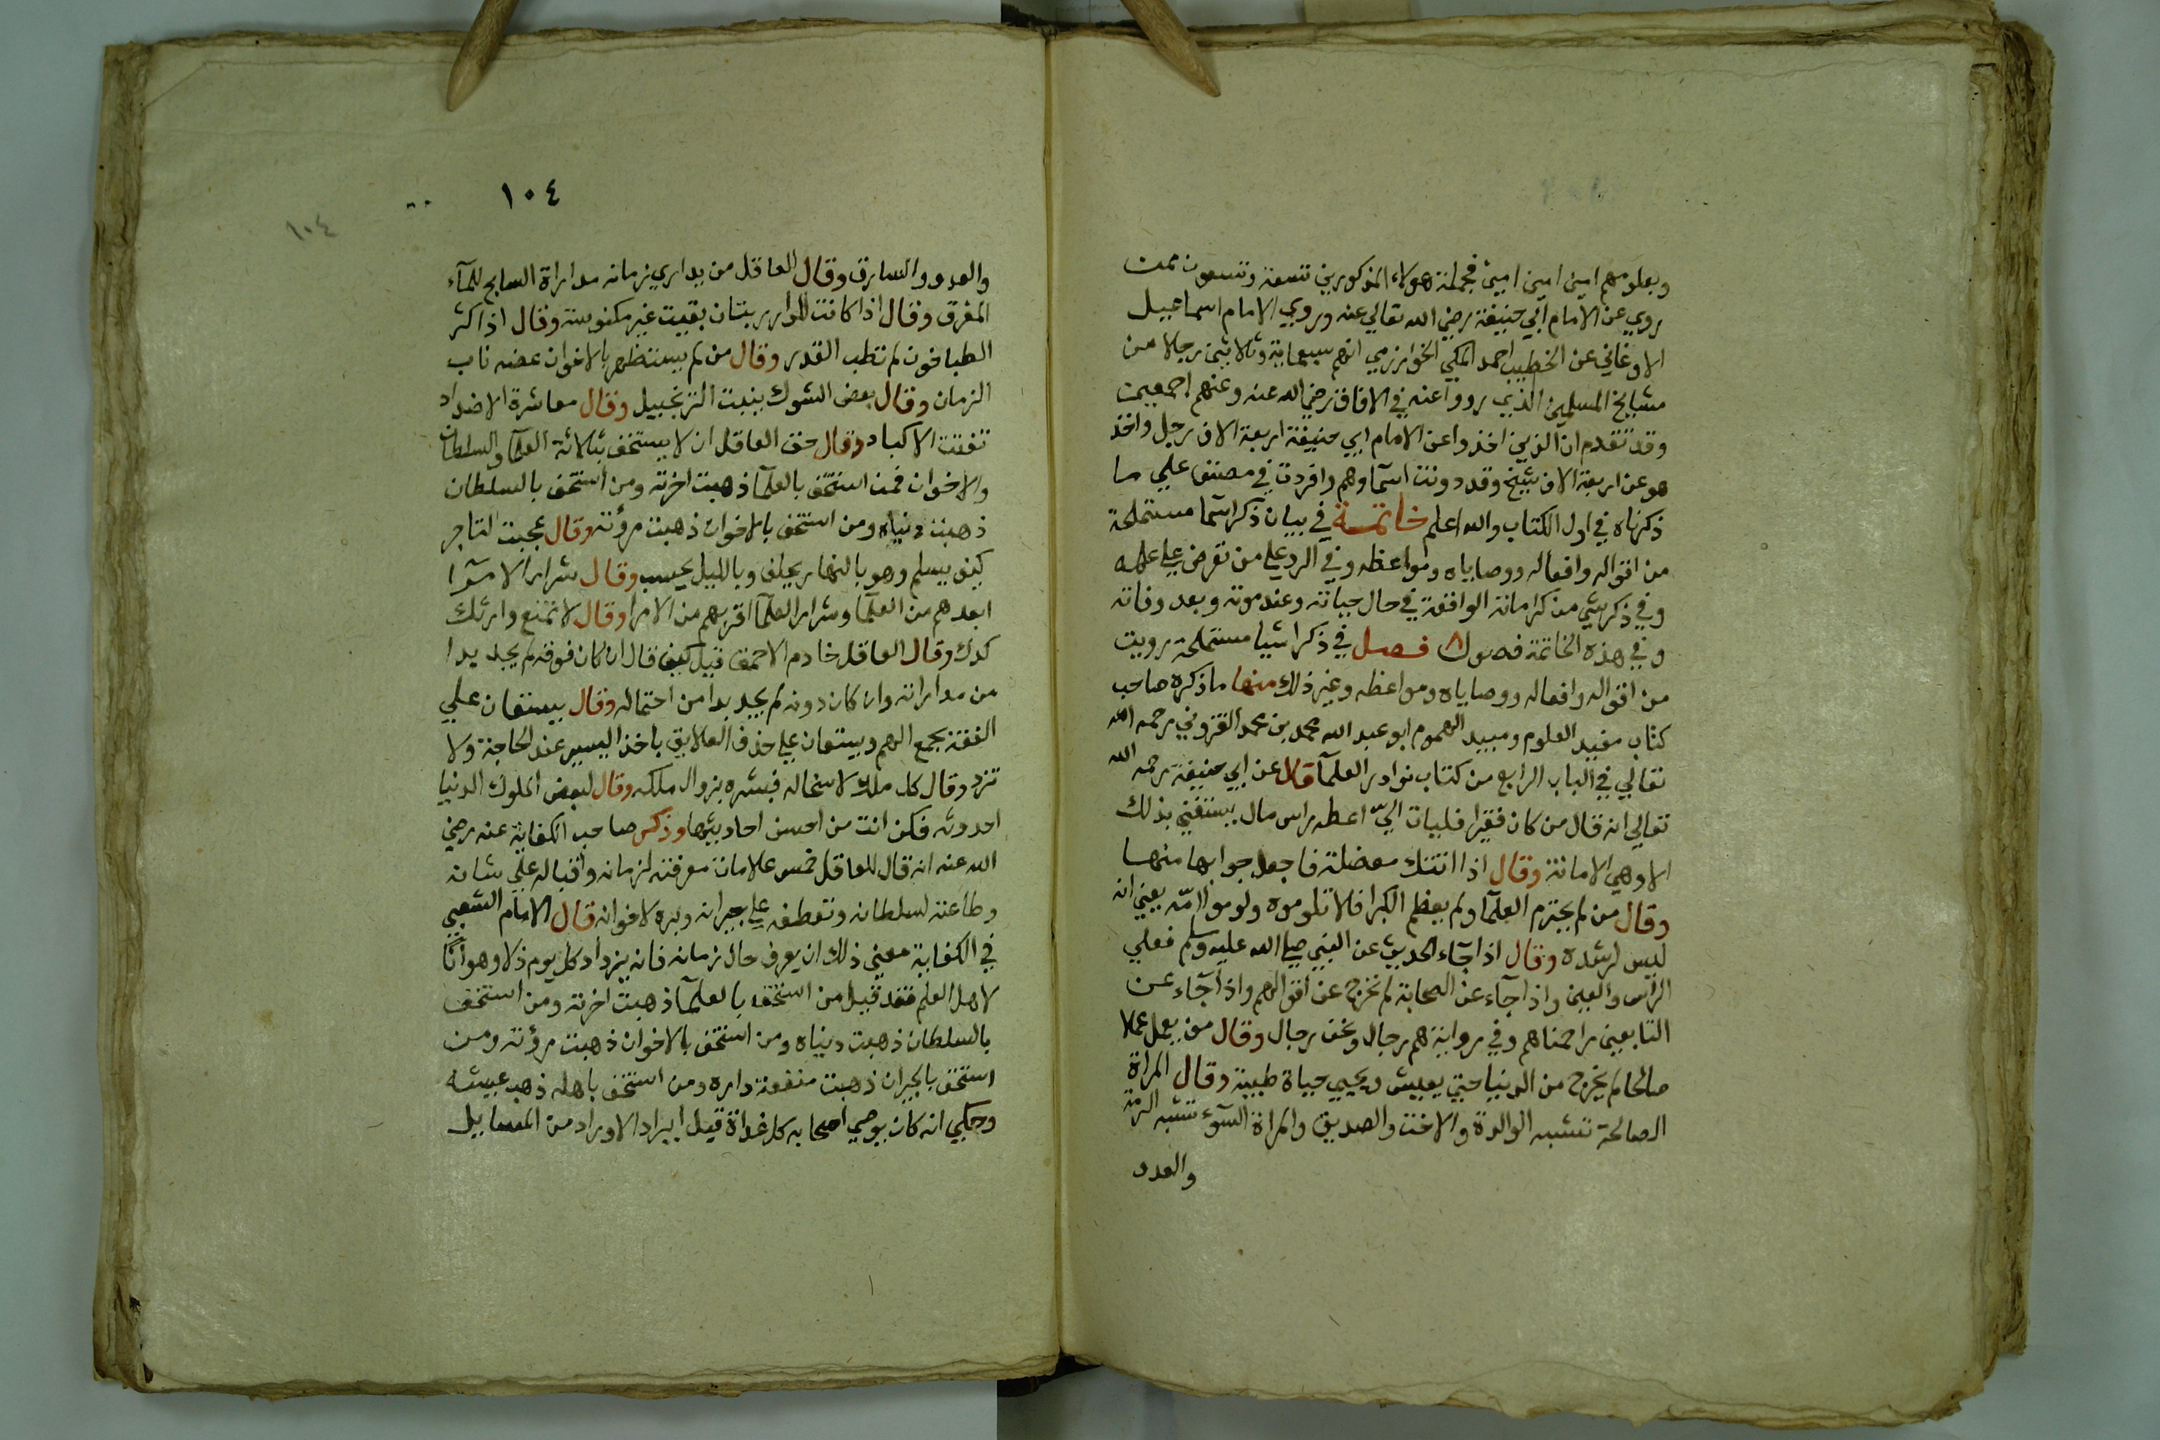 وبعلومهم امين امين امين فجملة هولاء المذكورين تسعة وتسعون ممن
روي عن الامام ابي حنيفة رضي الله تعالي عنه وروي الامام اسماعيل
الاوغاني عن الخطيب احمد المكي الخوارزمي انهم سبعماية وثلاثين رجلا من
مشايخ المسلمين الذين رووا عنه في الافاق رضي الله عنه وعنهم اجمعين
وقد تقدم ان الذين اخذوا عن الامام ابي حنيفة اربعة الاف رجل واخذ
هو عن اربعة الاف شيخ وقد دونت اسماوهم وافردت في مصنف علي ما
ذكرناه في اول الكتاب والله اعلم خاتمة في بيان ذكر اسما مستملحة
من اقواله وافعاله ووصاياه ومواعظه وفي الرد علي من تعرض علي علمه
وفي ذكر شي من كراماته الواقعة في حال حياته وعند موته وبعد وفاته
وفي هذه الخاتمة فصول ٨ فصل في ذكر اشيا مستملحة رويت
من اقواله وافعاله ووصاياه ومواعظه وغير ذلك منها ما ذكره صاحب
كتاب مفيد العلوم ومبيد الهموم ابو عبد الله محمد بن محمد القزويني رحمه الله
تعالي في الباب الرابع من كتاب نوادر العلمآ قال عن ابي حنيفة رحمه الله
تعالي انه قال من كان فقيرا فليات اليّ اعطه راس مال يستغني بذلك
الا وهي الامانة وقال اذا اتتك معضلة فاجعل جوابها منها
وقال من لم يحترم العلمآ ولم يعظم الكبرا فلا تلوموه ولوموا امّه يعني انه
ليس لرشده وقال اذا جآء الحديث عن النبي صلي الله عليه وسلم فعلي
الراس والعين واذا جآء عن الصحابة لم نخرج عن اقوالهم واذا جآء عن
التابعين زاحمناهم وفي رواية هم رجال ونحن رجال وقال من يعمل عملا
صالحا لم يخرج من الدنيا حتي يعيش ويحيي حياة طيبة وقال المراة
الصالحة تشبه الوالدة والاخت والصديق والمراة السوٓء تشبه الرمة
والعدو
١٠٤
١٠٤
والعدو والسارق وقال العاقل من يداري زمانه مداراة السابح للمآء
المغرق وقال اذا كانت الدار ربتان بقيت غير مكنوسة وقال اذا كثر
الطباخون لم تطب القدر وقال من لم يستظهر بالاخوان عضه ناب
الزمان وقال بعض الشوك ينبت الزنجبيل وقال معاشرة الاضداد
تفتت الاكباد وقال حق العاقل ان لا يستخف بثلاثة العلمآ والسلطان
والاخوان فمن استخف بالعلمآ ذهبت اخرته ومن استخف بالسلطان
ذهبت دنياه ومن استخف بالاخوان ذهبت مرؤته وقال عجبت لتاجر
كيف يسلم وهو بالنهار يحلف وبالليل يحسب وقال شرار الامرآ
ابعدهم من العلمآ وشرار العلمآ اقربهم من الامرا وقال لا تمنع وارثك
كدك وقال العاقل خادم الاحمق قيل كيف قال ان كان فوقه لم يجد بدا
من مداراته وان كان دونه لم يجد بدا من احتماله وقال يستعان علي
الفقه بجمع الهم ويستعان علي حذف العلايق باخذ اليسير عند الحاجة ولا
تزد وقال كل ملك لا سخا له فبشره بزوال ملكه وقال لبعض الملوك الدنيا
احدوثه فكن انت من احسن احاديثها وذكر صاحب الكفاية عنه رضي
الله عنه انه قال للعاقل خمس علامات معرفته لزمانه واقباله علي شانه
وطاعته لسلطانه وتعطفه علي جيرانه وبره لاخوانه قال الامام الشعبي
في الكفاية معني ذلك ان يعرف حال زمانه فانه يزداد كل يوم ذلا وهوانًا
لاهل العلم فقد قيل من استخف بالعلمآ ذهبت اخرته ومن استخف
بالسلطان ذهبت دنياه ومن استخف بالاخوان ذهبت مرؤته ومن
استخف بالجيران ذهبت منفعة داره ومن استخف باهله ذهب عيشه
وحكي انه كان يوصي اصحابه كل غداة قبل ايراد الاوراد من المسايل